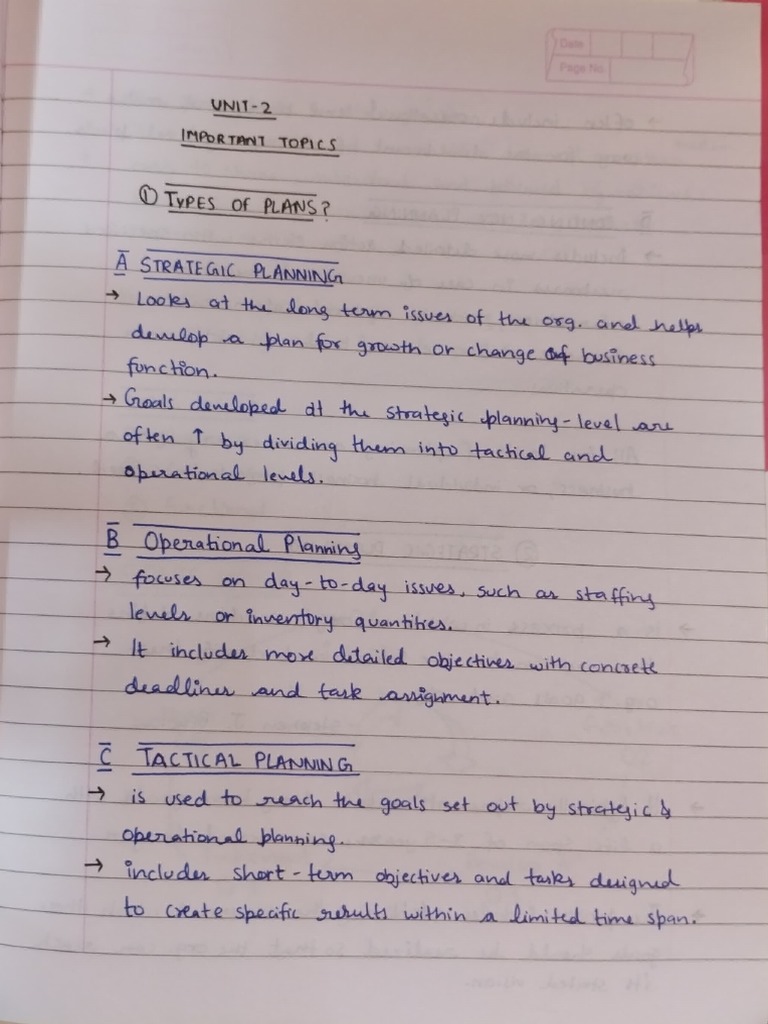 Date
Page No.
UNIT-2
IMPORTANT TOPICS
① TYPES OF PLANS?
A STRATEGIC PLANNING
→ Looks at the long term issues of the org. and helps
develop a plan for growth or change of business
function.
→ Goals developed at the strategic planning-level are
often ↑ by dividing them into tactical and
operational levels.
B Operational Planning
→ focuses on day-to-day issues, such as staffing
levels or inventory quantities.
→ It includes more detailed objectives with concrete
deadlines and task assignment.
C TACTICAL PLANNING
→ is used to reach the goals set out by strategic &
operational planning.
→ includes short-term objectives and tasks designed
to create specific results within a limited time span.